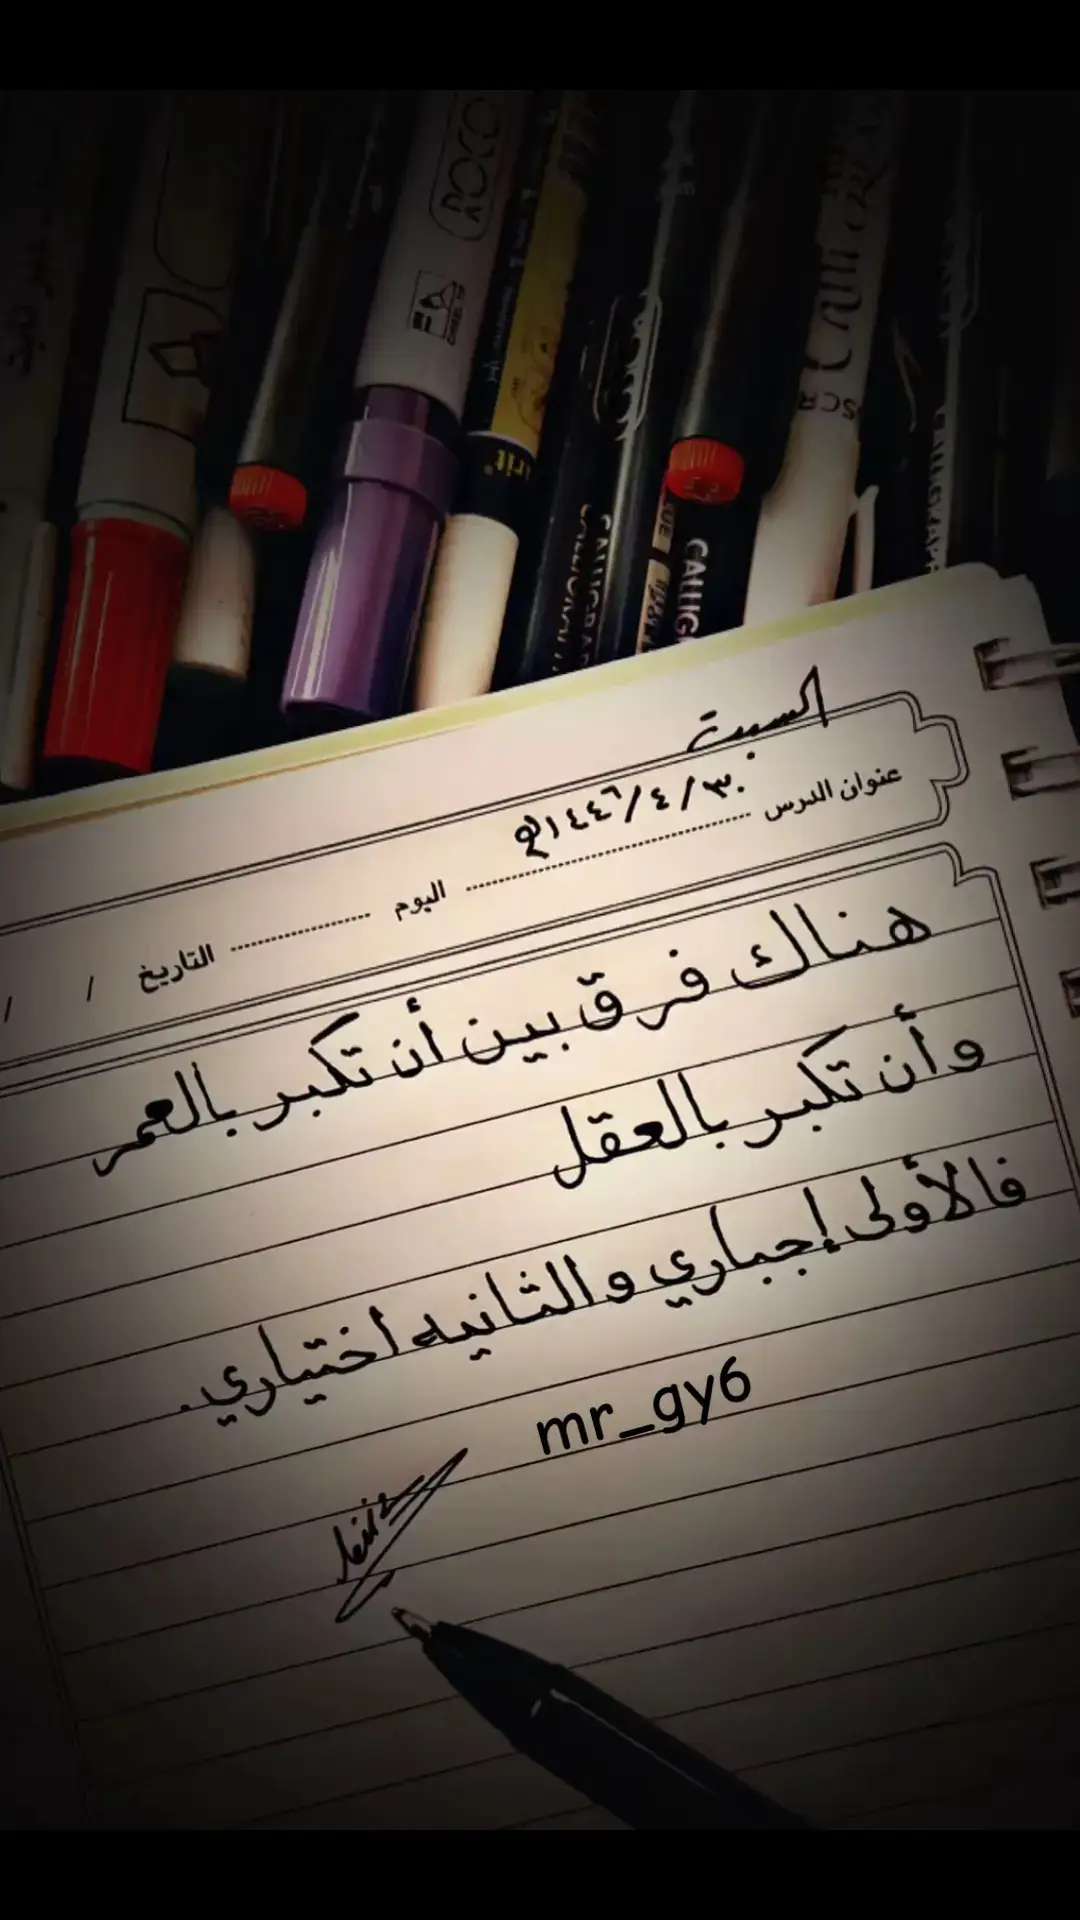 ROCO
CALLIGRAPH
CALLIG
السبت
٣٠/٤/١٤٤٦هـ
عنوان الدرس ........ اليوم ........ التاريخ / /
هناك فرق بين أن تكبر بالعمر
وأن تكبر بالعقل
فالأولى إجباري والثانيه اختياري.
mr_gy6